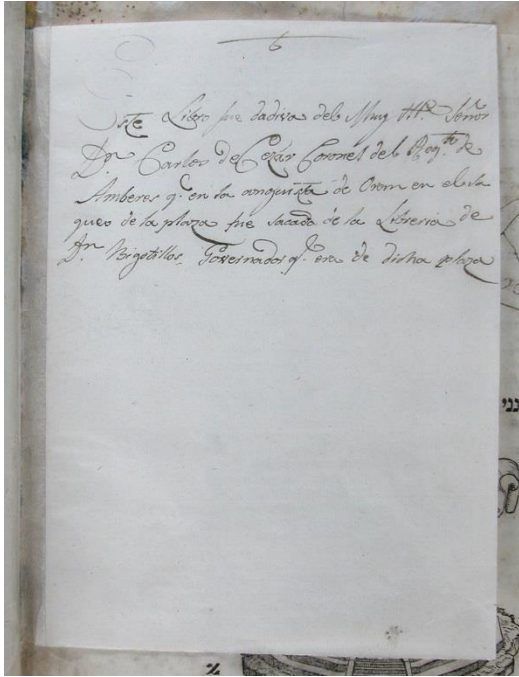 6
Este Libro fue dadiva del Muy Ill.e Señor
D.n Carlos de Cezár Coronel del Reg.to de
Amberes q.e en la conquista de Oran en el sa
queo de la plaza fue sacada de la Libreria de
D.n Bigotillos, Governador q.e era de dicha plaza